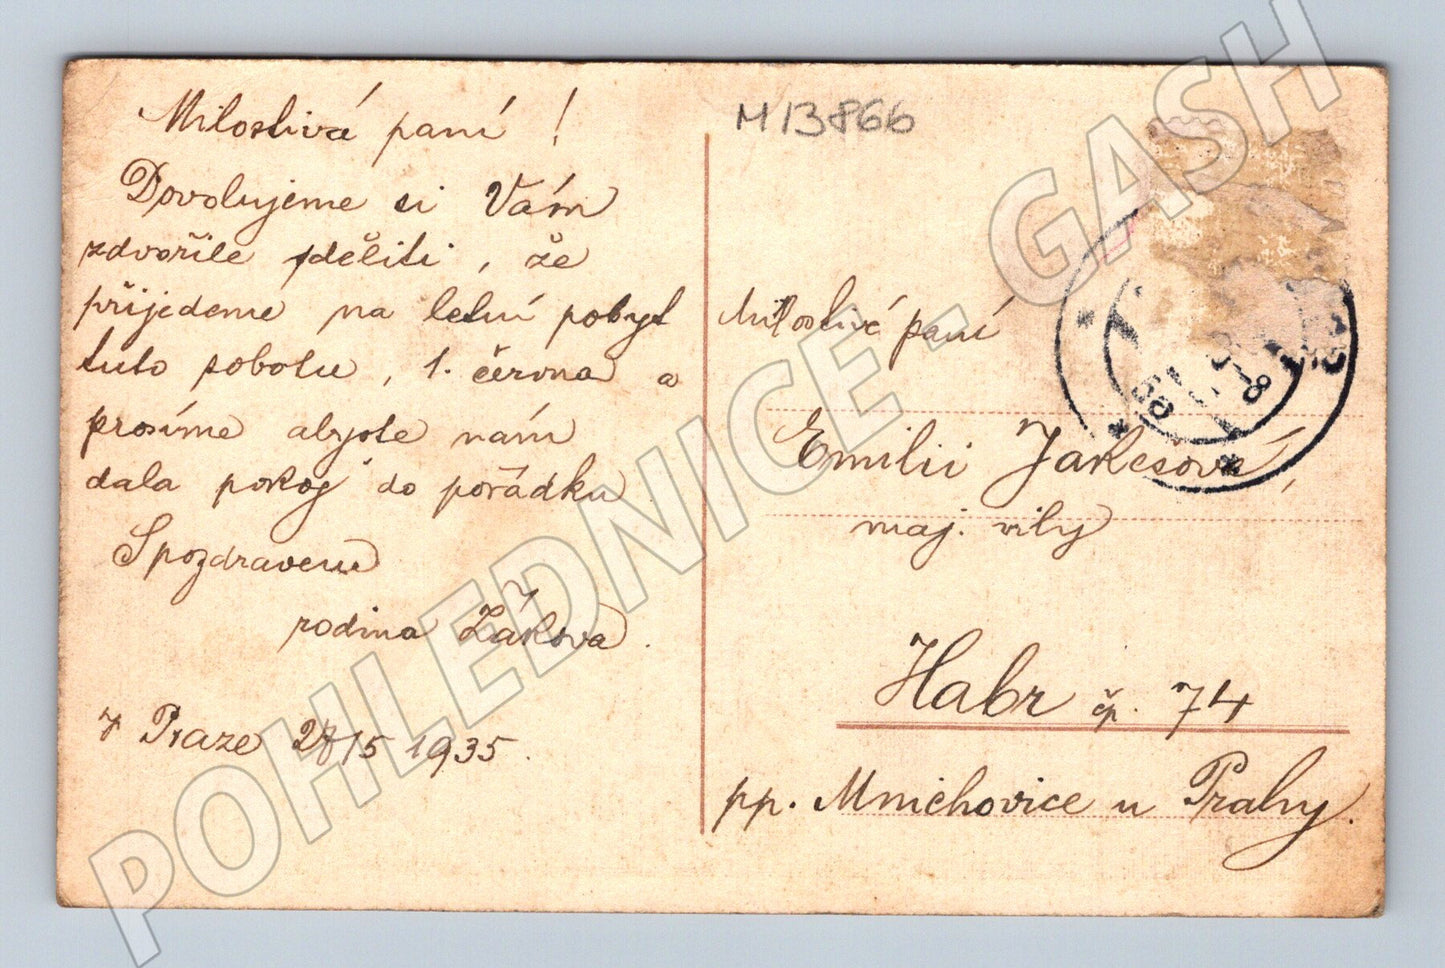 M13866
Milostivá paní !
Dovolujeme si Vám
zdvořile sděliti, že
přijedeme na letní pobyt
tuto sobotu, 1. června a
prosíme abyste nám
dala pokoj do pořádku
S pozdravem
rodina Žákova.
V Praze 28/5 1935.
Milostivé paní
Emilii Jakešové,
maj. vily
Habr čp. 74
pp. Mnichovice u Prahy.
POHLEDNICE - GASH